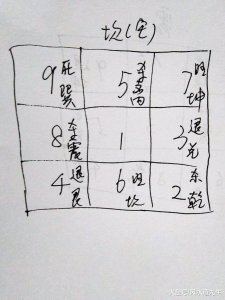 坎(宅)
9 死巽 5 杀离 7 旺坤
8 杀震 1 3 退兑
4 退艮 6 旺坎 2 杀乾